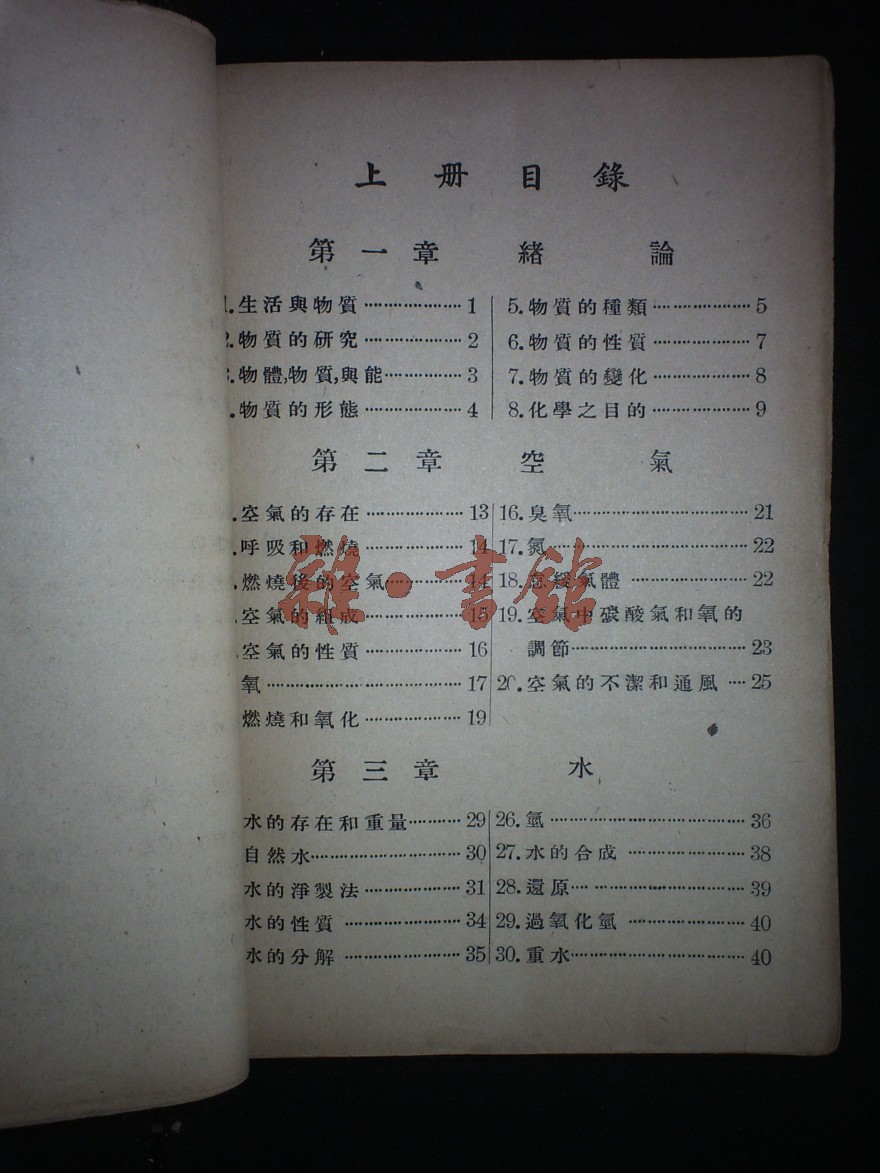 上册目錄
第一章 緒論
1.生活與物質 1
2.物質的研究 2
3.物體,物質,與能 3
.物質的形態 4
5.物質的種類 5
6.物質的性質 7
7.物質的變化 8
8.化學之目的 9
第二章 空氣
.空氣的存在 13
.呼吸和燃燒 14
.燃燒後的空氣 14
.空氣的組成 15
.空氣的性質 16
氧 17
燃燒和氧化 19
16.臭氧 21
17.氮 22
18.惰氣體 22
19.空氣中碳酸氣和氧的
調節 23
20.空氣的不潔和通風 25
第三章 水
水的存在和重量 29
自然水 30
水的淨製法 31
水的性質 34
水的分解 35
26.氫 36
27.水的合成 38
28.還原 39
29.過氧化氫 40
30.重水 40
雜·書館